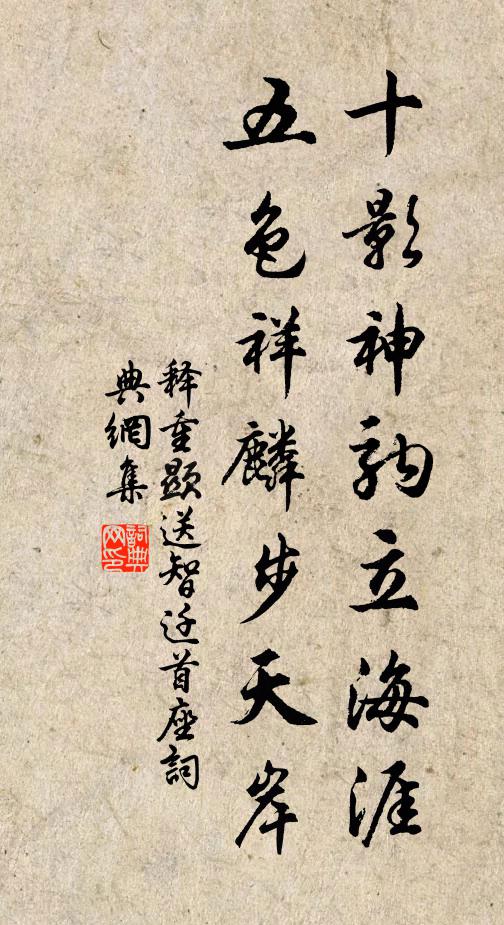 十影神駒立海涯
五色祥麟步天岸
释重顯送智迁首座詞
典網集
詞典
网印